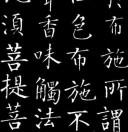 布施所謂
色布施不
香味觸法
須菩提菩